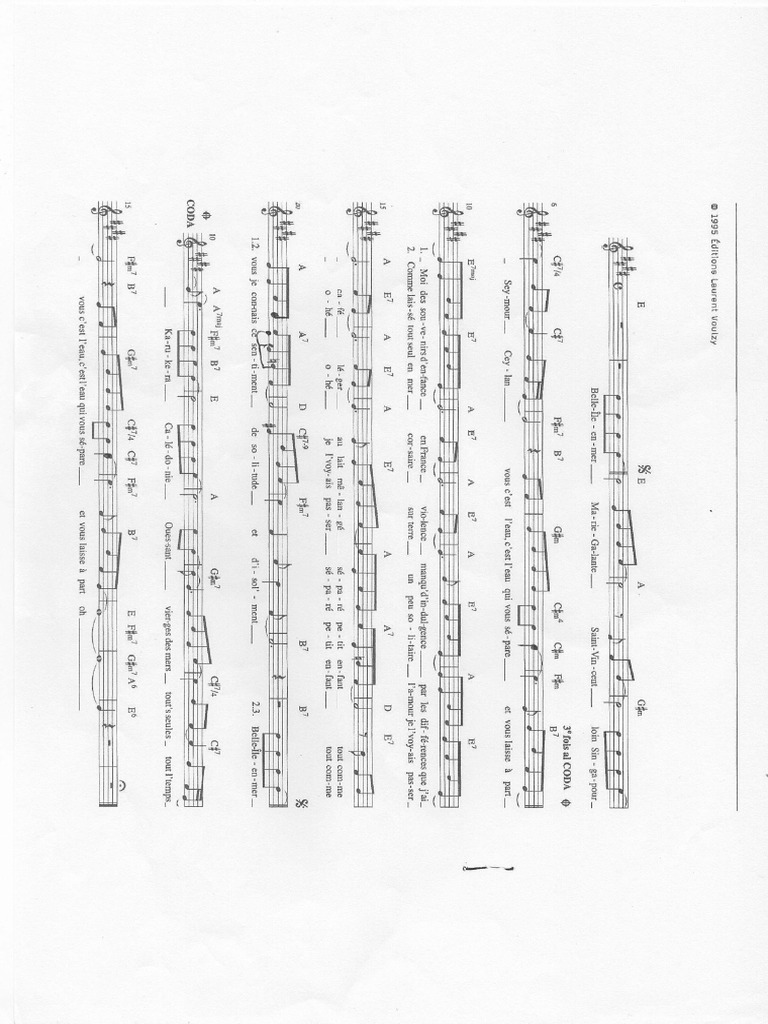 © 1995 Éditions Laurent Voulzy.
E 𝄋 E A G#m
Belle-Île - en-mer__ Ma-rie - Ga-lante__ Saint-Vin-cent__ loin Sin - ga-pour_
3e fois al CODA
6 C#7/4 C#7 F#m7 B7 G#m C#m4 C#m F#m B7
_ Sey-mour__ Cey - lan__ vous c'est l'eau, c'est l'eau qui vous sé-pare__ et vous laisse à part_
10 E7maj E7 A E7 A E7 A E7 A E7
1. _ Moi des sou-ve-nirs d'en-fance__ en France__ vio-lence__ manqu'd'in-dul-gence__ par les dif-fé-rences que j'ai
2. Comme lais-sé tout seul en mer__ cor-saire__ sur terre__ un peu so-li-taire__ l'a-mour je l'voy-ais pas-ser_
15 A E7 A E7 A E7 A A7 D E7
_ ca - fé lé-ger au lait mé-lan-gé sé-pa-ré pe-tit en-fant tout com-me
_ o - hé__ o - hé__ je l'voy-ais pas-ser__ sé-pa-ré pe-tit en-fant tout com-me
20 A A7 D C#7-9 F#m7 B7 B7 𝄋
1.2. vous je con-nais ce sen-ti-ment__ de so-li-tude__ et d'i-sol'-ment__ 2.3. Belle-Île-en-mer_
CODA
10 A A7maj F#m7 B7 E A G#m7 C#7/4 C#7
__ Ka-ru-ke-ra__ Ca-lé-do-nie__ Oues-sant vier-ges des mers_ tout's seules_ tout l'temps_
15 F#m7 B7 G#m7 C#7/4 C#7 F#m7 B7 E F#m7 G#m7 A6 E6
_ vous c'est l'eau, c'est l'eau qui vous sé-pare__ et vous laisse à part oh__